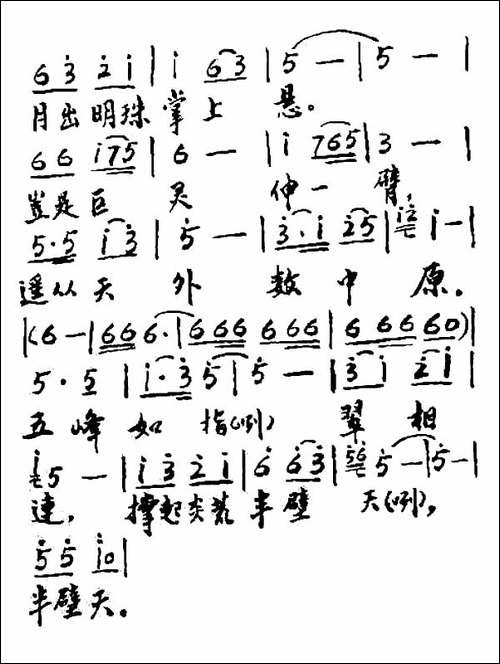 6 3̇ 2̇ i̇ | i̇ 6 3̇ | 5̇ — | 5̇ — |
月出明珠掌上 悬。
6 6 i̇ 7 5 | 6 — | i̇ 7 6 5 | 3 — |
岂是巨 灵 伸一 臂，
5·5 i̇ 3̇ | 5̇ — | 3̇·i̇ 2̇ 5 | i̇ 2̇ i̇ — |
遥从天 外 数中 原。
|(6 — | 6 6 6· | 6 6 6 6 6 6 | 6 6 6 6 0)|
5·5 | i̇·3̇ 5̇ | 5̇ — | 3̇ i̇ 2̇ i̇ |
五峰 如 指(咧) 翠 相
i̇ 5 — | i̇ 3̇ 2̇ i̇ | 6̇ 6̇ 3̇ | 5̇ 6̇ 5̇ — | 5̇ — |
連， 撑起炎荒 半 壁 天(咧)，
5̇ 5̇ i̇ 0 |
半壁天。